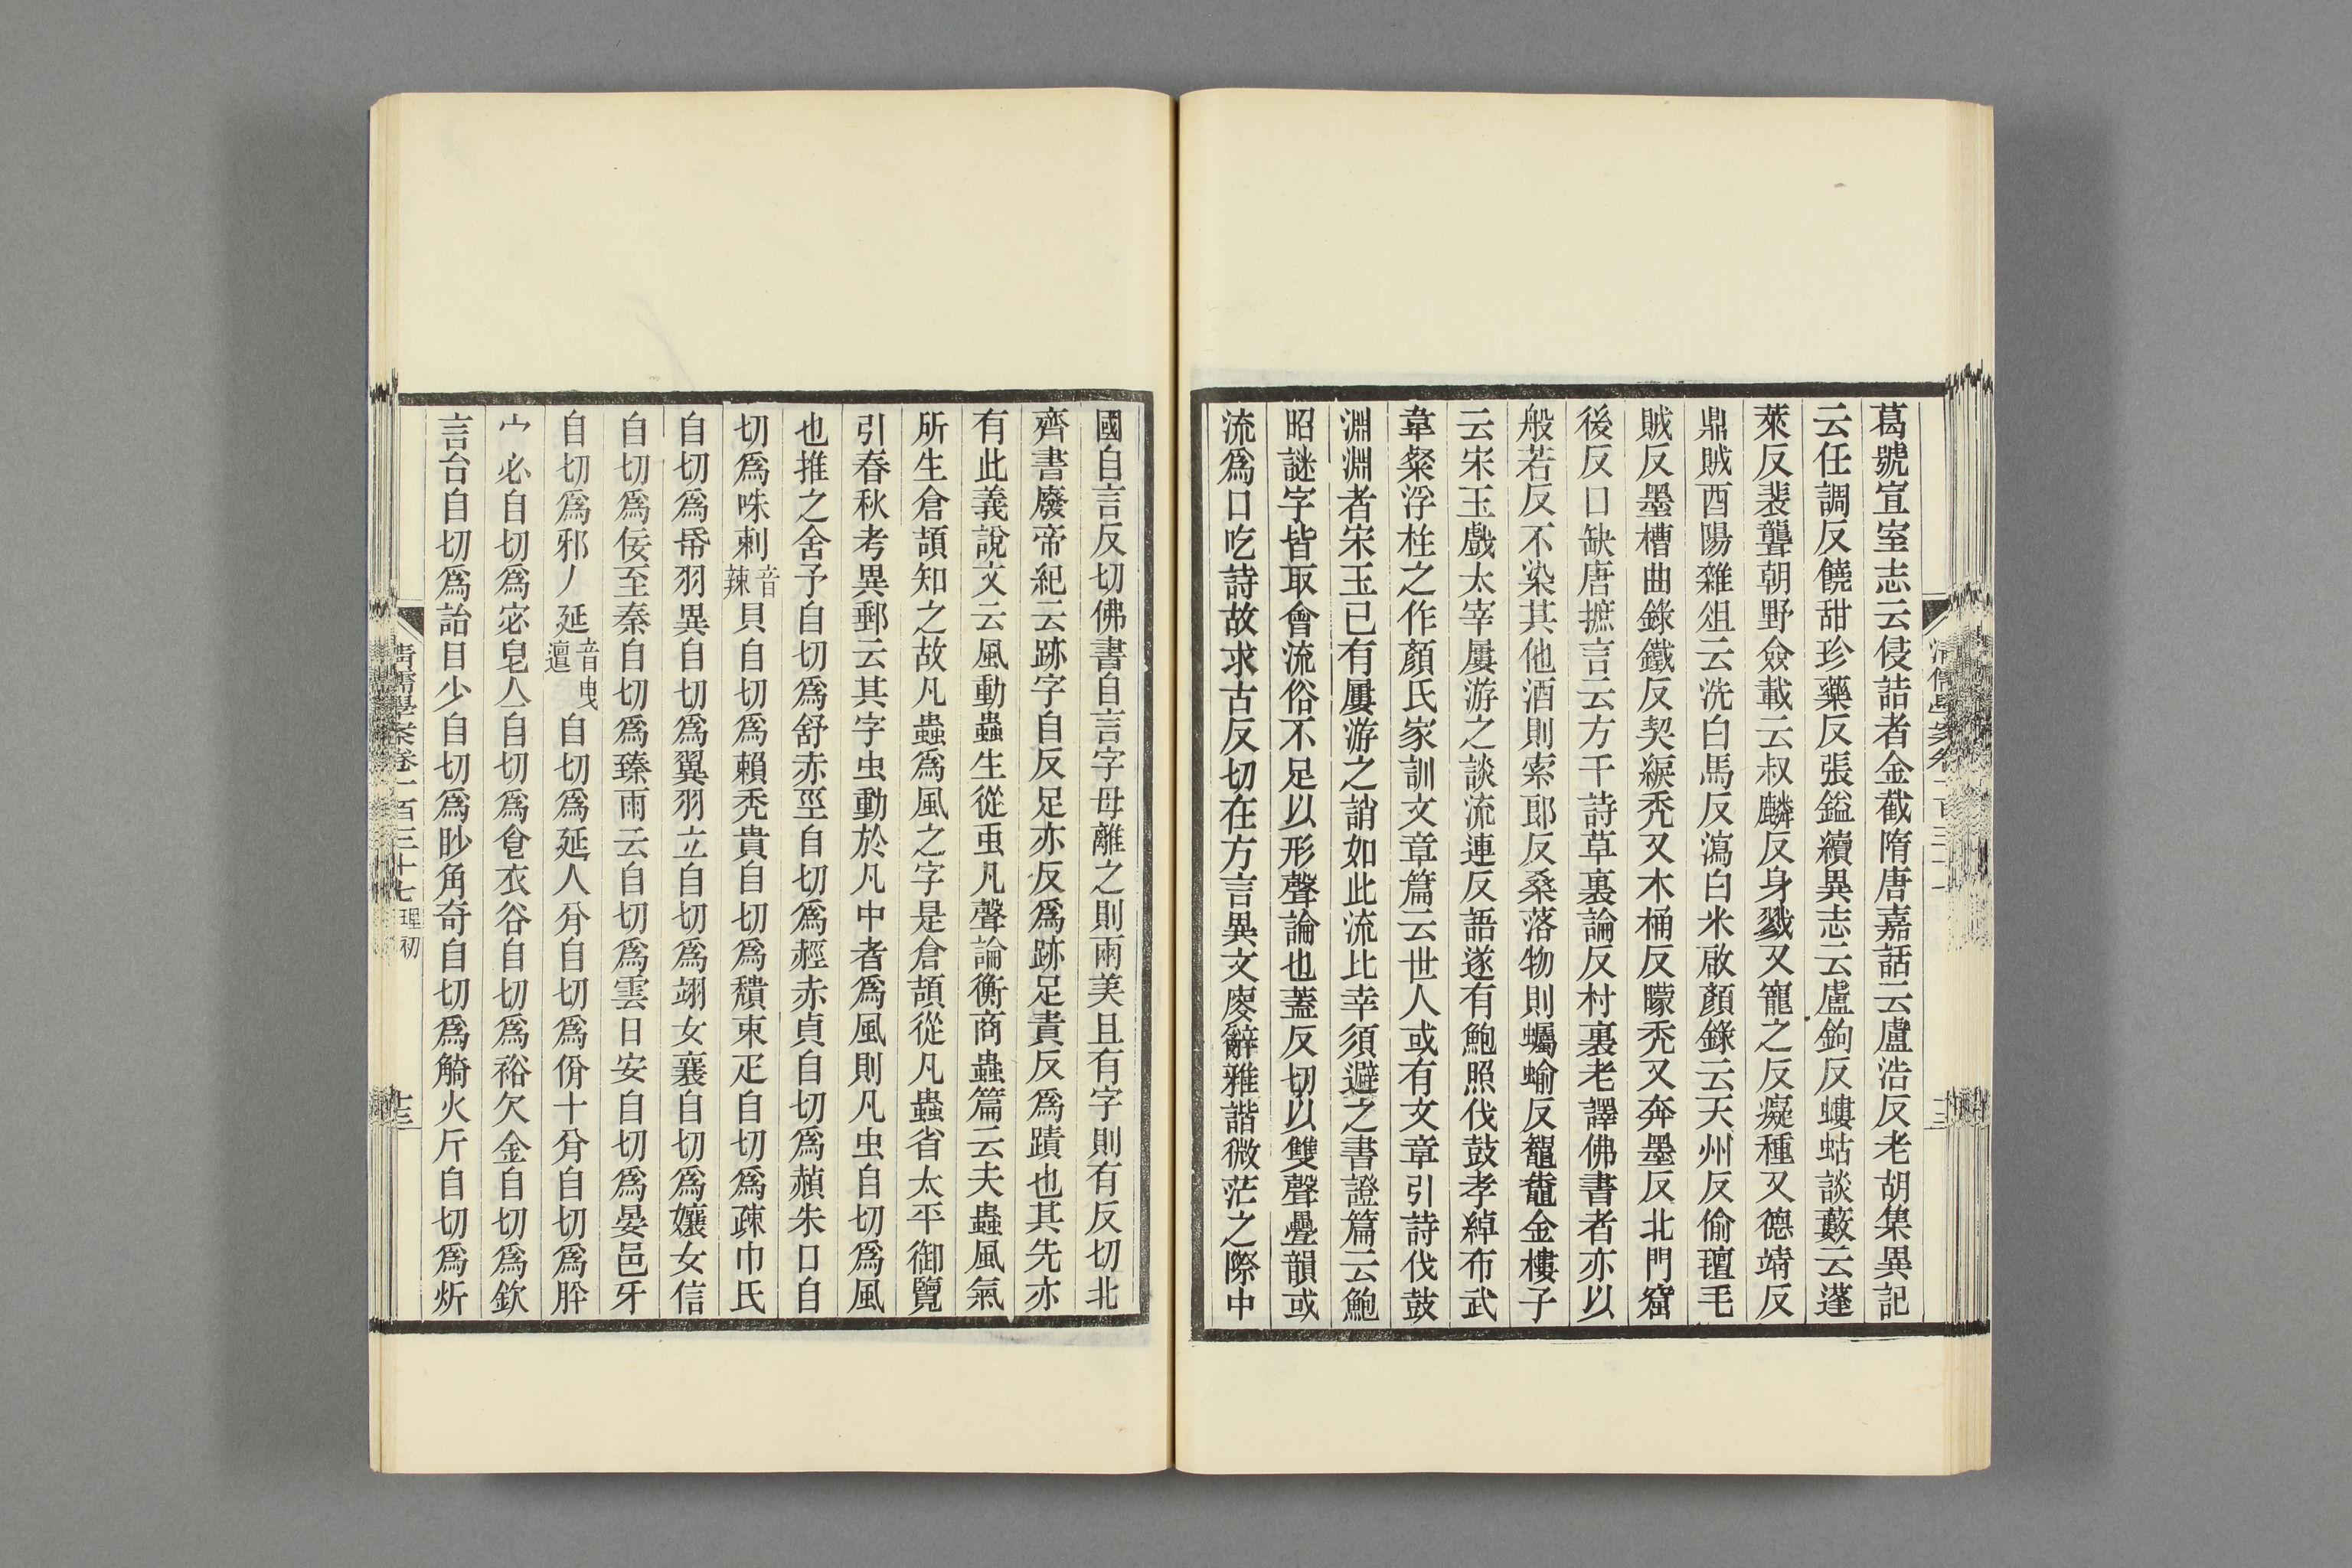 葛號宣室志云侵詰者金截隋唐嘉話云盧浩反老胡集異記
云任調反饒甜珍藥反張鎰續異志云盧鉤反螻蛄談藪云蓬
萊反裴聾朝野僉載云叔麟反身戮又寵之反癡種又德靖反
鼎賊酉陽雜俎云洗白馬反瀉白米啟顏錄云天州反偷氊毛
賊反墨槽曲錄鐵反契綟秃又木桶反矇秃又奔墨反北門窟
後反口缺唐摭言云方干詩草裏論反村裏老譯佛書者亦以
般若反不染其他酒則索郎反桑落物則蠾蝓反鼅鼄金樓子
云宋玉戲太宰屢游之談流連反語遂有鮑照伐鼓孝綽布武
韋粲浮柱之作顏氏家訓文章篇云世人或有文章引詩伐鼓
淵淵者宋玉已有屢游之誚如此流比幸須避之書證篇云鮑
昭謎字皆取會流俗不足以形聲論也蓋反切以雙聲疊韻或
流爲口吃詩故求古反切在方言異文廋辭雅諧微茫之際中
國自言反切佛書自言字母離之則兩美且有字則有反切北
齊書廢帝紀云跡字自反足亦反爲跡足責反爲蹟也其先亦
有此義說文云風動蟲生從虫凡聲論衡商蟲篇云夫蟲風氣
所生倉頡知之故凡蟲爲風之字是倉頡從凡蟲省太平御覽
引春秋考異郵云其字虫動於凡中者爲風則凡虫自切爲風
也推之舍予自切爲舒赤巠自切爲經赤貞自切爲赬朱口自
切爲咮剌音辣貝自切爲賴秃貴自切爲穨束疋自切爲疎巾氏
自切爲帋羽異自切爲翼羽立自切爲翊女襄自切爲孃女信
自切爲佞至秦自切爲臻雨云自切爲雲日安自切爲晏邑牙
自切爲邪丿延音曳邅自切爲延人分自切爲份十分自切爲肸
宀必自切爲宓皂亼自切爲皀衣谷自切爲裕欠金自切爲欽
言台自切爲詒目少自切爲眇角奇自切爲觭火斤自切爲炘
清儒學案卷一百三十七 理初
十三